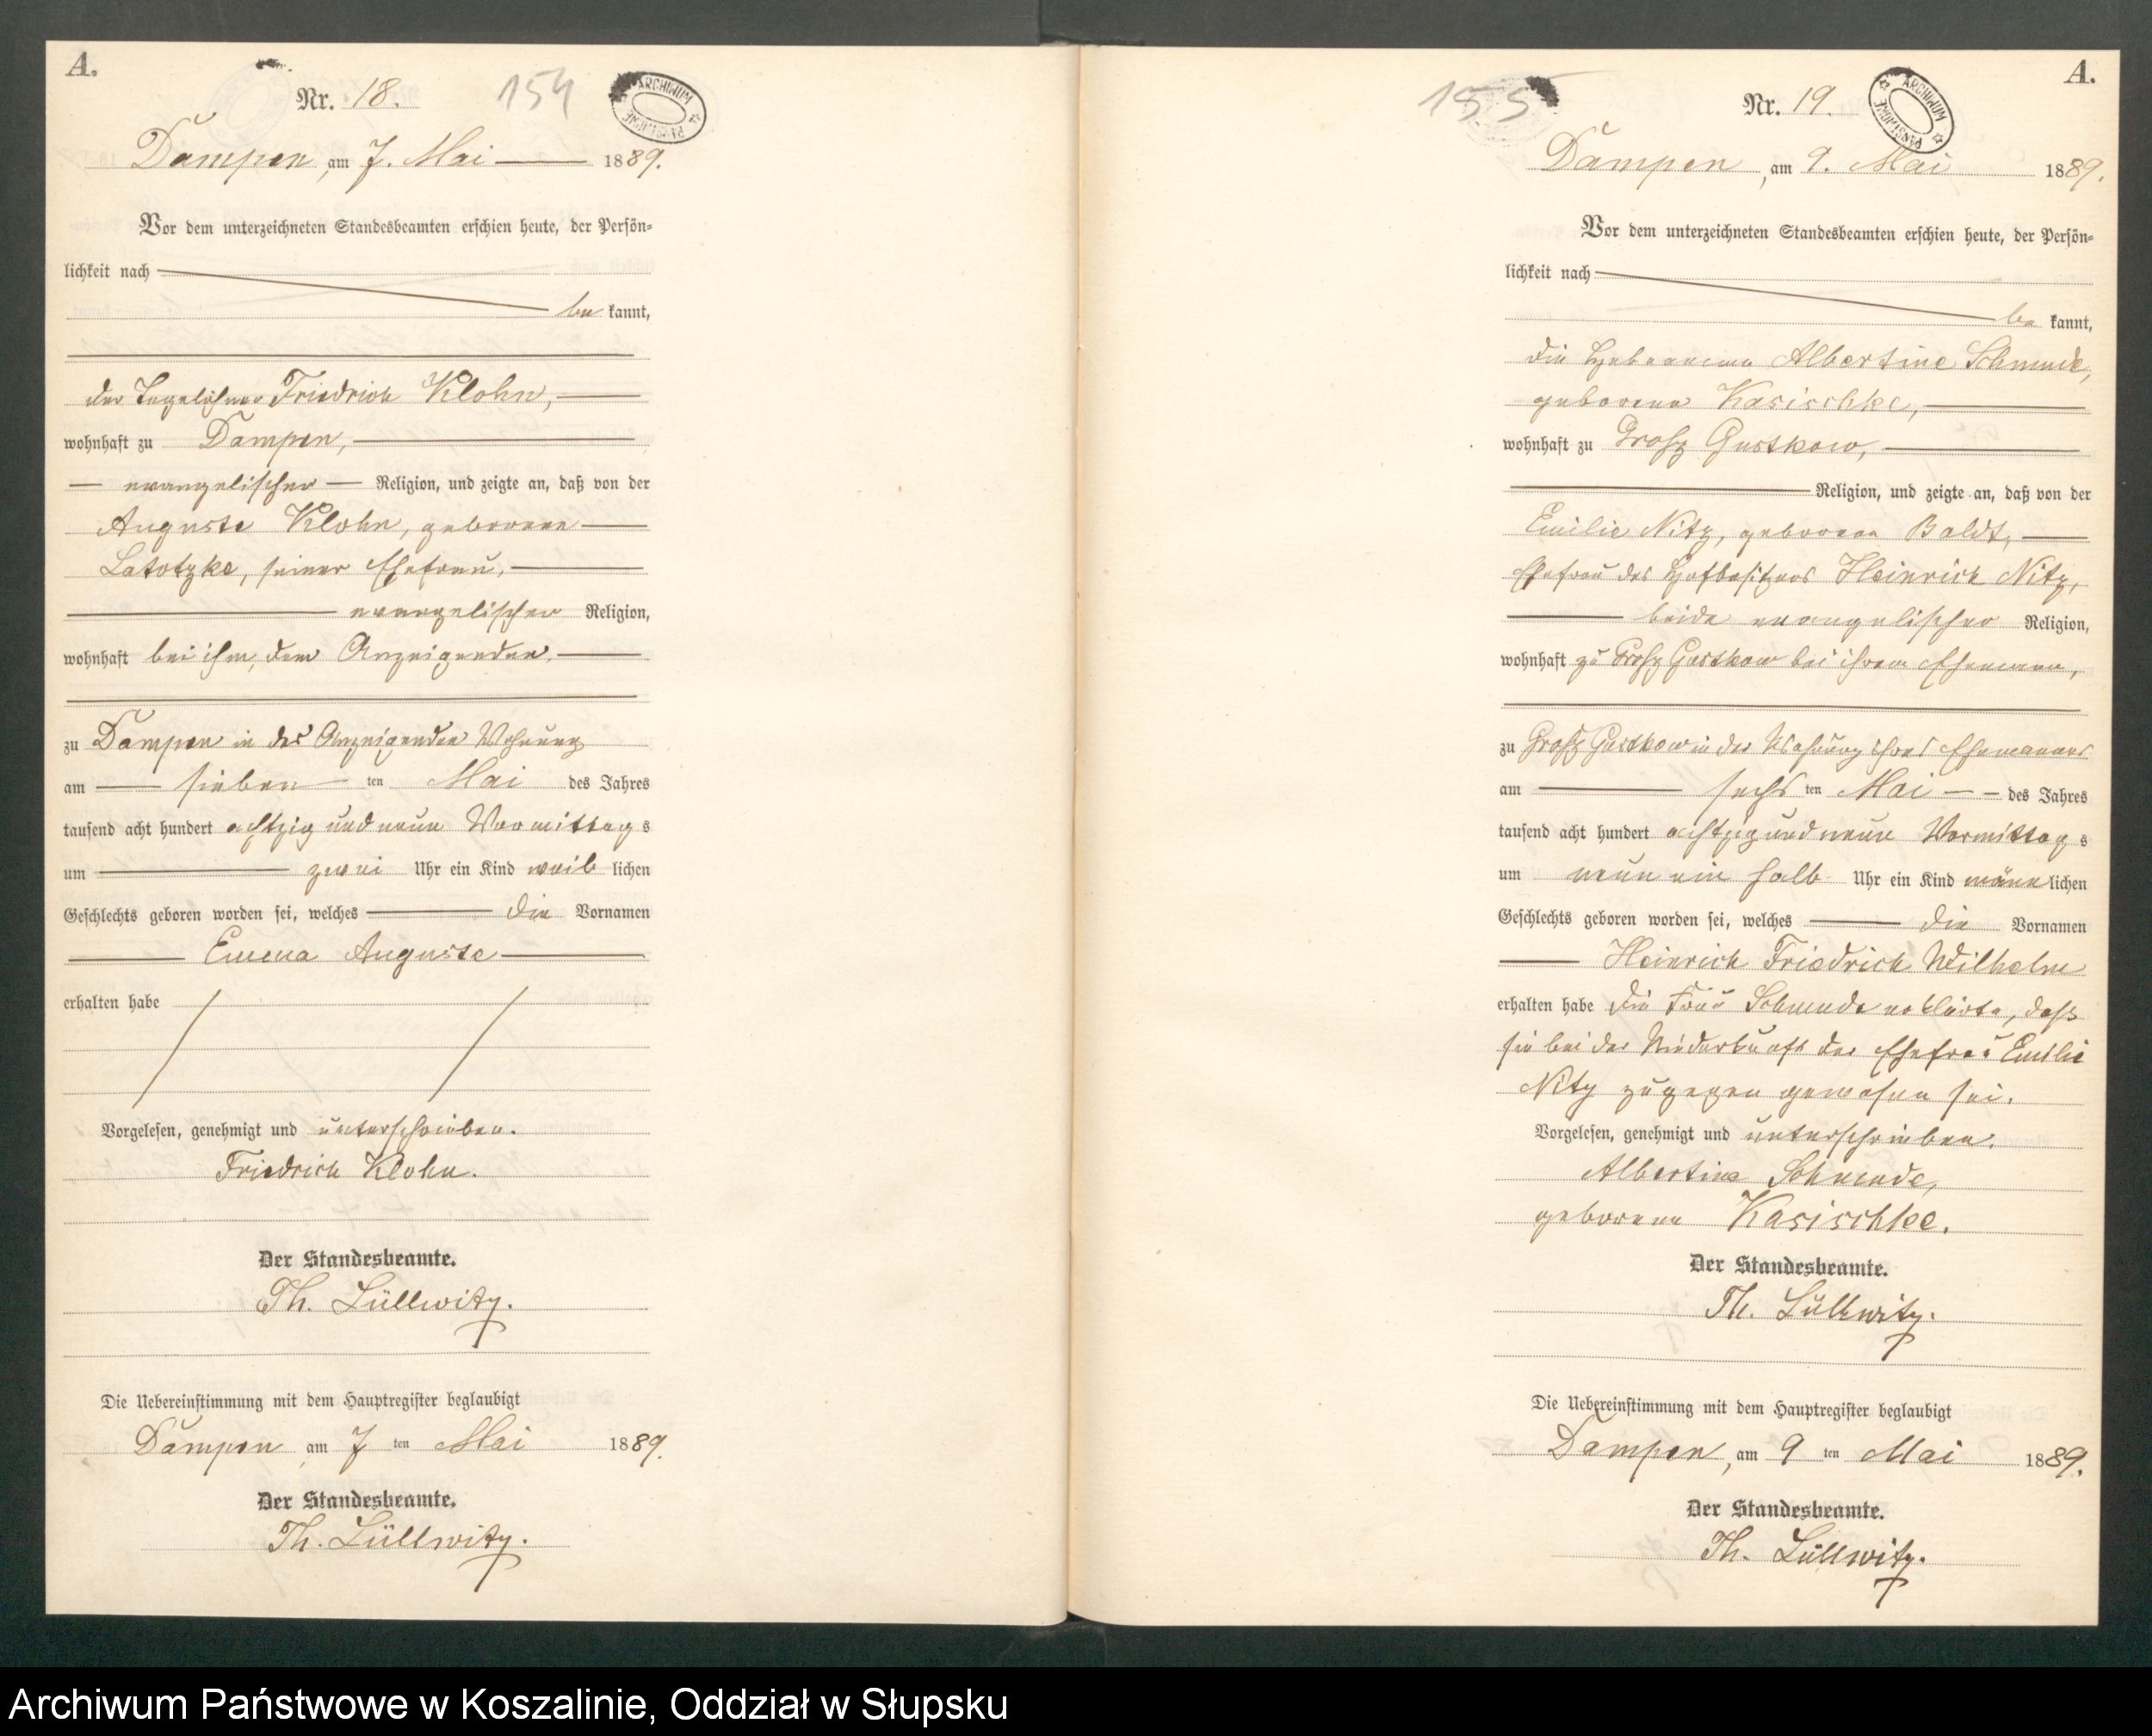 A.
Nr. 18.
154
ARCHIWUM PAŃSTWOWE
Dampen, am 7. Mai 1889.
Vor dem unterzeichneten Standesbeamten erschien heute, der Persön=
lichkeit nach
be kannt,
der Tagelöhner Friedrich Klohn,
wohnhaft zu Dampen,
evangelischer Religion, und zeigte an, daß von der
Auguste Klohn, geborene
Latotzke, seiner Ehefrau,
evangelischer Religion,
wohnhaft bei ihm, dem Anzeigenden,
zu Dampen in des Anzeigenden Wohnung
am sieben ten Mai des Jahres
tausend acht hundert achtzig und neun Vormittags
um zwei Uhr ein Kind weiblichen
Geschlechts geboren worden sei, welches die Vornamen
Emma Auguste
erhalten habe
Vorgelesen, genehmigt und unterschrieben.
Friedrich Klohn.
Der Standesbeamte.
Th. Lüllwitz.
Die Uebereinstimmung mit dem Hauptregister beglaubigt
Dampen, am 7 ten Mai 1889.
Der Standesbeamte.
Th. Lüllwitz.
A.
155
Nr. 19.
ARCHIWUM PAŃSTWOWE
Dampen, am 9. Mai 1889.
Vor dem unterzeichneten Standesbeamten erschien heute, der Persön=
lichkeit nach
be kannt,
die Hebeamme Albertine Schmude,
geborene Kasischke,
wohnhaft zu Groß Gustkow,
Religion, und zeigte an, daß von der
Emilie Nitz, geborene Baldt,
Ehefrau des Hofbesitzers Heinrich Nitz,
beide evangelischer Religion,
wohnhaft zu Groß Gustkow bei ihrem Ehemann,
zu Groß Gustkow in der Wohnung ihres Ehemannes
am sechs ten Mai des Jahres
tausend acht hundert achtzig und neun Vormittags
um neun ein halb Uhr ein Kind männlichen
Geschlechts geboren worden sei, welches die Vornamen
Heinrich Friedrich Wilhelm
erhalten habe Die Frau Schmude erklärte, daß
sie bei der Niederkunft der Ehefrau Emilie
Nitz zugegen gewesen sei.
Vorgelesen, genehmigt und unterschrieben.
Albertine Schmude,
geborene Kasischke.
Der Standesbeamte.
Th. Lüllwitz.
Die Uebereinstimmung mit dem Hauptregister beglaubigt
Dampen, am 9 ten Mai 1889.
Der Standesbeamte.
Th. Lüllwitz.
Archiwum Państwowe w Koszalinie, Oddział w Słupsku